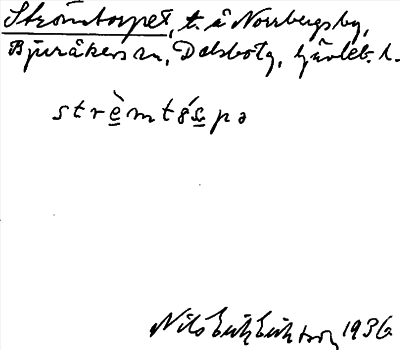 Strömtorpet, t. å Norrbergsby,
Bjuråkers sn, Delsbo tg, Gävleb. l.
strèmtɞ́ʂpə
Nils Erik Erikson 1936